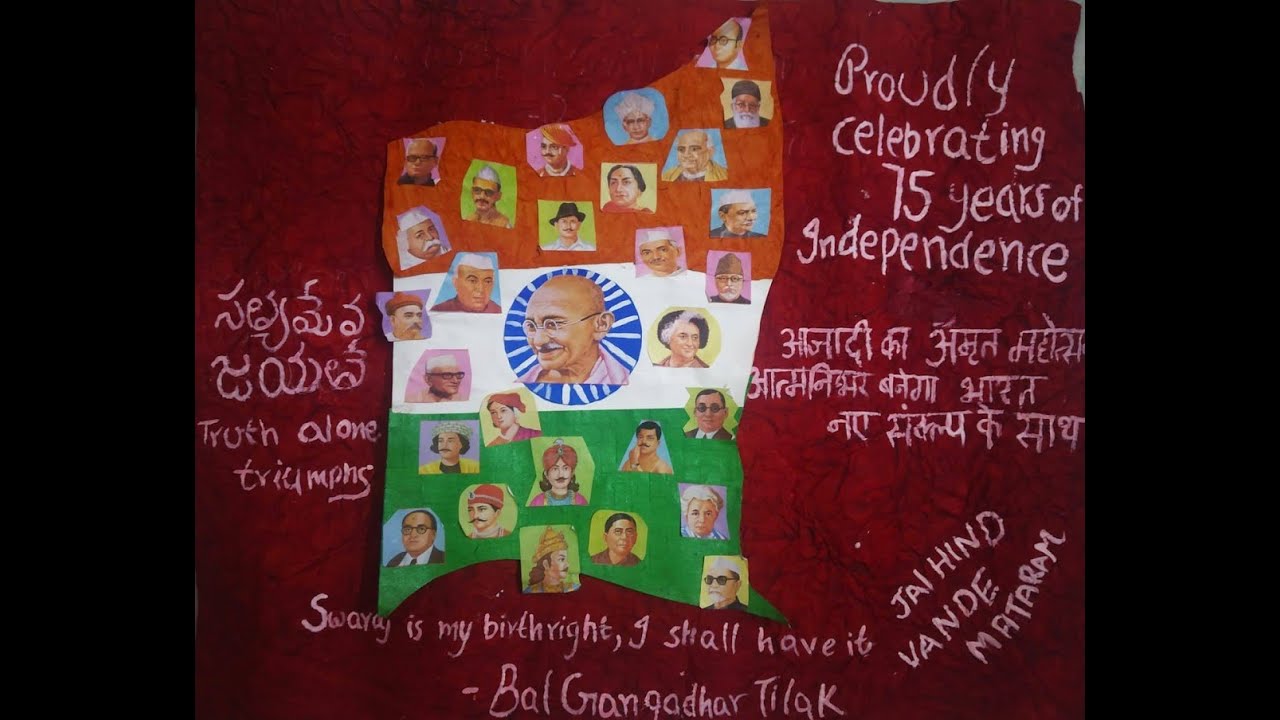 Proudly
celebrating
75 years of
Independence
సత్యమేవ
జయతే
Truth alone
triumphs
आजादी का अमृत महोत्स
आत्मनिर्भर बनेगा भारत
नए संकल्प के साथ
JAI HIND
VANDE
MATARAM
Swaraj is my birthright, I shall have it
- Bal Gangadhar Tilak